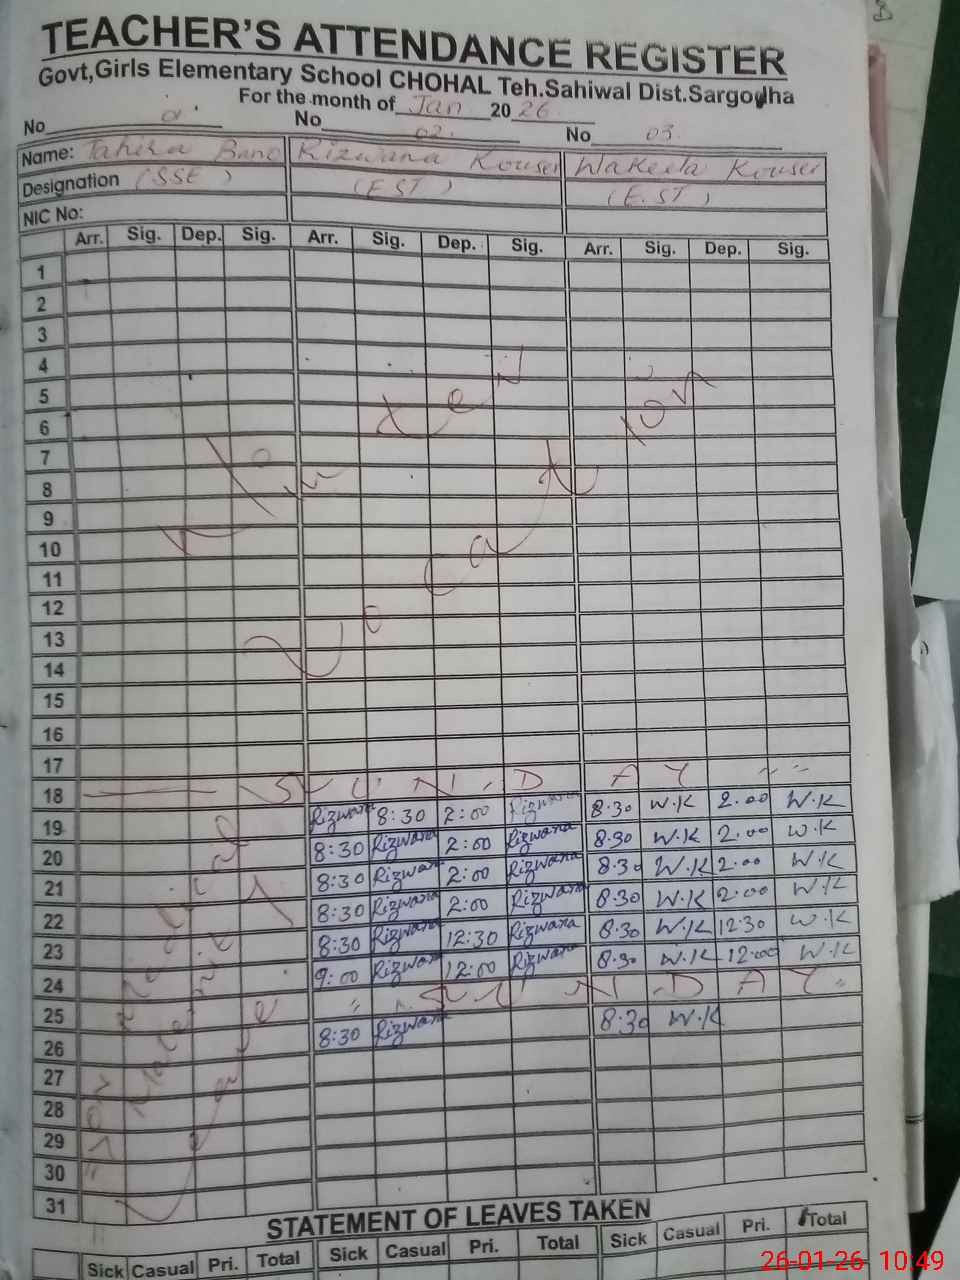 TEACHER'S ATTENDANCE REGISTER
Govt,Girls Elementary School CHOHAL Teh.Sahiwal Dist.Sargodha
For the month of Jan 2026
No No 02. No 03.
Name: Tahira Bano Rizwana Kouser Wakeela Kouser
Designation (SSE) (EST) (E.ST)
NIC No:
Arr. Sig. Dep. Sig. Arr. Sig. Dep. Sig. Arr. Sig. Dep. Sig.
1
2
3
4
5
6
7
8
9
10
11
12
13
14
15
16
17
Winter
Vacation
18 SUNDAY
19 Rizwana 8:30 2:00 Rizwana 8.30 W.K 2.00 W.K
20 8:30 Rizwana 2:00 Rizwana 8.30 W.K 2.00 W.K
21 8:30 Rizwana 2:00 Rizwana 8.30 W.K 2.00 W.K
22 8:30 Rizwana 2:00 Rizwana 8.30 W.K 2.00 W.K
23 8:30 Rizwana 12:30 Rizwana 8.30 W.K 12:30 W.K
24 9:00 Rizwana 12:00 Rizwana 8.30 W.K 12.00 W.K
25 SUNDAY
26 8:30 Rizwana 8:30 W.K
27
28
29
30
31
STATEMENT OF LEAVES TAKEN
Sick Casual Pri. Total Sick Casual Pri. Total Sick Casual Pri. Total
26-01-26 10:49